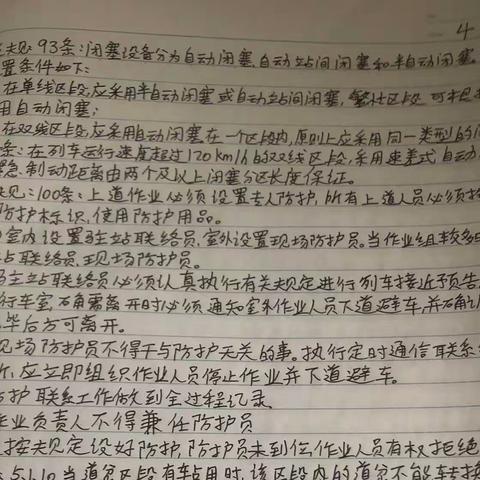 4
规: 93条:闭塞设备分为自动闭塞、自动站间闭塞和半自动闭塞.
置条件如下:
在单线区段,应采用半自动闭塞或自动站间闭塞,繁忙区段可
用自动闭塞;
在双线区段,应采用自动闭塞.在一个区段内,原则上应采用同一类型的
条:在列车运行速度超过120km/h的双线区段,采用速差式自动
急制动距离由两个及以上闭塞分区长度保证。
规:100条:上道作业必须设置专人防护,所有上道人员必须
防护标识,使用防护用品。
室内设置驻站联络员,室外设置现场防护员。当作业组较多
占联络员、现场防护员。
驻站联络员必须认真执行有关规定进行列车接近预告
行车室,确需离开时必须通知室外作业人员下道避车,并确认
毕后方可离开。
现场防护员不得干与防护无关的事。执行定时通信联系
应立即组织作业人员停止作业并下道避车。
防护联系工作做到全过程记录
作业负责人不得兼任防护员
按规定设好防护,防护员未到位,作业人员有权拒绝
5.1.10当道岔区段有车占用时,该区段内的道岔不能转换